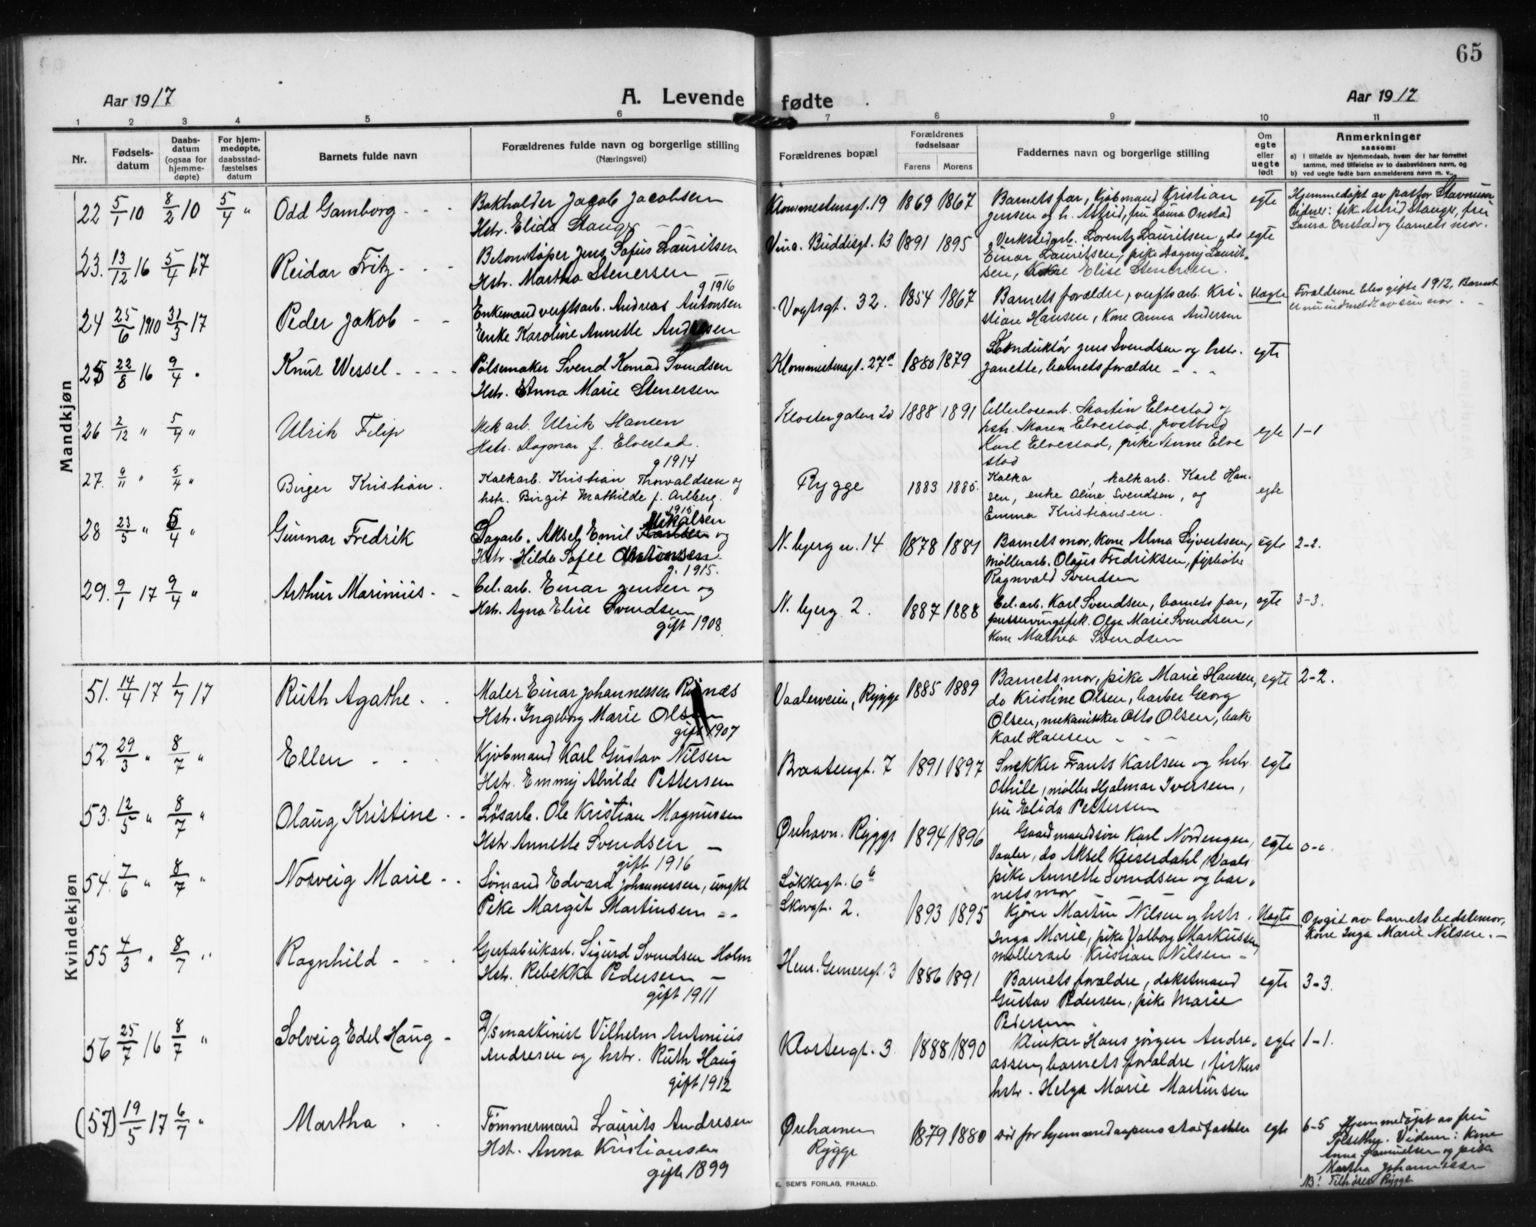 65
Aar 1917 A. Levende fødte Aar 1917
1 2 3 4 5 6 7 8 9 10 11
Nr. Fødsels-datum Daabs-datum (ogsaa for hjemme-døpte) For hjem-medøpte, daabsstad-fæstelses datum Barnets fulde navn Forældrenes fulde navn og borgerlige stilling (Næringsvei) Forældrenes bopæl Forældrenes fødselsaar Farens Morens Faddernes navn og borgerlige stilling Om egte eller uegte født Anmerkninger saasom:
a) I tilfælde av hjemmedaab, hvem der har forrettet samme, med tilføielse av to daabsvidners navn, og
b) ved uegte fødte barn anmelderens navn m. v.
Mandkjøn
22 5/1 10 8/2 10 5/4 " Odd Gamborg
Bokholder Jacob Jacobsen
Hstr. Elida Stange
Klommestensgt. 19 1869 1867
Barnets far, Kjøbmand Kristian
Jensen og h. Astrid, fru Laura Onstad
egte
Hjemmedøpt av pastor Stavnum
Vidner: frk. Astrid Stange, fru
Laura Onstad og barnets mor.
23. 13/12 16 5/4 17 Reidar Fritz
Betonstøper Jens Sofus Lauritsen
Hstr. Martha Stenersen
g 1916
Vinc. Buddesgt. 13 1891 1895
Verkstedarb. Lorentz Lauritsen, do
Einar Lauritsen, pike Aagny Laurit-
sen, Kone Elise Stenersen.
egte
24 25/6 1910 31/3 17 Peder Jakob
Enkemand verftsarb. Andreas Antonsen
Enke Karoline Annette Andresen
Vogtsgt. 32. 1854 1867
Barnets forældre, verftsarb. Kri-
stian Hansen, Kone Anna Andersen
Uegte
Forældrene blev gifte 1912. Barnet
er nu indmeldt av sin mor.
25 22/8 16 9/4 " Knut Wessel
Pølsemaker Svend Konrad Svendsen
Hstr. Anna Marie Stenersen
Klommestensgt. 27a 1880 1879
Konduktør Jens Svendsen og hstr.
Janette, barnets forældre
egte
26 2/12 " 5/4 " Ulrik Filip
Mek arb. Ulrik Hansen
Hstr. Dagmar f. Elvestad.
g 1914
Klostergaten 20 1888 1891
Cellulosearb. Martin Elvestad og
hstr. Maren Elvestad. postbud
Karl Elvestad, pike Anne Elve
stad
egte 1-1
27. 9/11 " 5/4 " Birger Kristian.
Kalkarb. Kristian Thorvaldsen og
hstr. Birgit Mathilde f. Arlberg.
1915
Rygge 1883 1885.
kalkarb. Karl Han-
sen, enke Oline Svendsen, og
Emma Kristiansen.
egte
28 23/5 " 5/4 " Gunnar Fredrik
Sagarb. Aksel Emil Mikalsen og
Hstr. Hilda Sofie Antonsen
g. 1915.
N. bjerg n. 14 1878 1881
Barnets mor, kone Alma Syvertsen,
møllerarb. Olaus Fredriksen, fyrbøter
Ragnvald Svendsen
egte 2-2.
29. 9/1 17 9/4 " Arthur Marinius
Cel. arb. Einar Jensen og
Hstr. Agna Elise Svendsen
gift 1908.
N. bjerg 2. 1887 1888
Cel. arb. Karl Svendsen, barnets far,
presserningsfrk. Olga Marie Svendsen,
Kone Mathea Svendsen
egte 3-3.
Kvindekjøn
51. 14/4 17 1/7 17 Ruth Agathe
Maler Einar Johannessen Rynæs
Hstr. Ingeborg Marie Olsen
gift 1907
Vaalerveien, Rygge 1885 1889
Barnets mor, pike Marie Hansen,
do Kristine Olsen, barber Georg
Olsen, mekanikker Otto Olsen, bak
Karl Hansen
egte 2-2.
52. 29/3 " 8/7 " Ellen
Kjøbmand Karl Gustav Nilsen
Hstr. Emmy Alvilde Pettersen
Braatengt. 7 1891 1897
Snekker Frants Karlsen og hstr
Othile, møller Hjalmar Iversen,
fru Elida Pettersen
egte
53. 12/5 " 8/7 " Olaug Kristine
Løsarb. Ole Kristian Magnussen
Hstr Annette Svendsen
gift 1916
Ørehavn. Rygge 1894 1896
Gaardmandssøn Karl Nordengen,
Vaaler, do Aksel Kaiserdahl, Vaaler
pike Annette Svendsen og bar-
nets mor
egte 0-0.
54. 7/6 " 8/7 " Norveig Marie
Sømand Edvard Johannessen, ungkl
Pike Margit Martinsen
Løkkegt. 6b
Skovgt. 2. 1893 1895
Kjører Martin Nilsen og hstr.
Inga Marie, pike Valborg Markussen,
møllerarb. Kristian Nilsen
Uegte
Opgit av barnets bedstemor,
Kone Inga Marie Nilsen.
55 4/3 " 8/7 " Ragnhild
Gjærfabrikarb. Sigurd Svendsen Holm
Hstr. Rebekka Pedersen
gift 1911
Henr. Gernersgt. 3 1886 1891
Barnets forældre, doksmand
Gustav Pedersen, pike Marie
Pedersen
egte 3-3.
56 25/7 16 8/7 " Solveig Edel Haug
D/S maskinist Vilhelm Antonius
Andresen og hstr. Ruth Haug
gift 1912
Klostergt. 3 1888 1890
Hans Jørgen Andre-
assen, barnets forældre, fiskers
hstr. Helga Marie Martinsen
egte 1-1.
(57) 19/5 17 6/7 " Martha
Tømmermand Laurits Andresen
Hst. Anna Kristiansen
gift 1899
Ørehavnen
Rygge 1879 1880
egte
6-5 Hjemmedøpt av fru
Vidner: Kone
Anna Samuelsen og pike
Martha Johannessen
NB! Tilhører Rygge
E. SEM'S FORLAG, FR.HALD.